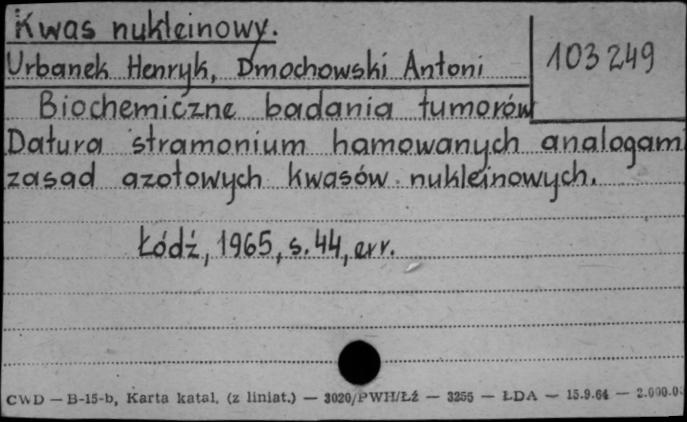 Kwas nukleinowy.
103 249
Urbanek Henryk, Dmochowski Antoni
Biochemiczne badania tumorów
Datura stramonium hamowanych analogami
zasad azotowych kwasów nukleinowych.
Łódź, 1965, s. 44, err.
CWD — B-15-b, Karta katal. (z liniat.) — 3020/PWH/Łź — 3255 — ŁDA — 15.9.64 —